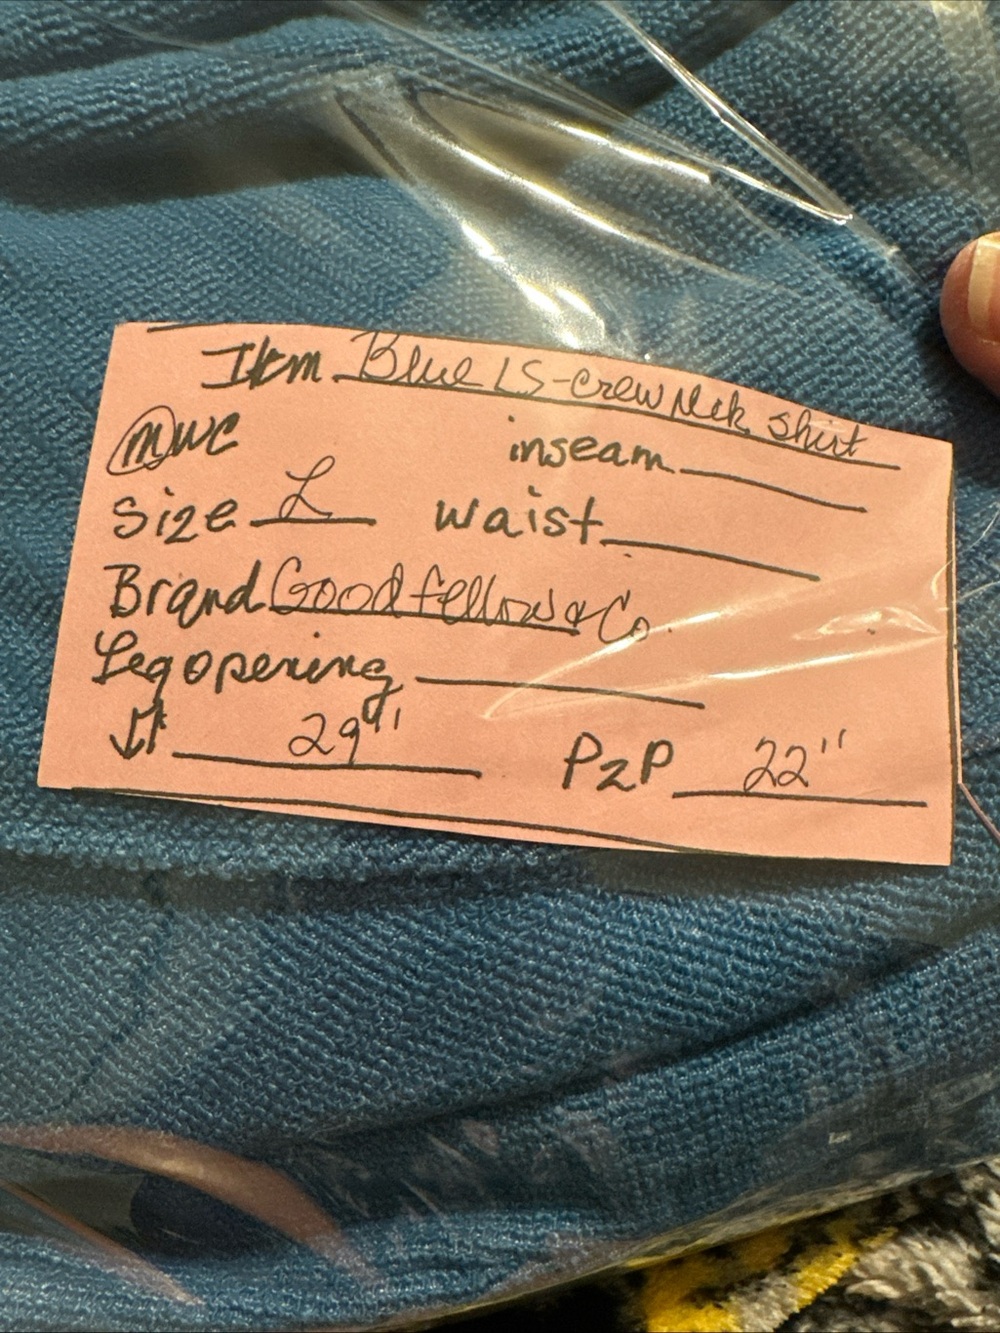 Item Blue LS-crew Neck Shirt
MWC inseam
Size L waist
Brand Goodfellow & Co.
Leg opening
↓↑ 29" P2P 22"